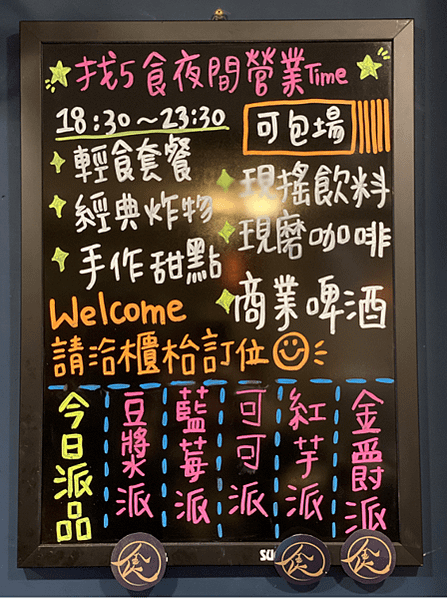 找5食夜間營業Time
18:30～23:30
可包場
輕食套餐
經典炸物
手作甜點
現搖飲料
現磨咖啡
商業啤酒
Welcome
請洽櫃枱訂位
今日派品
豆漿派
藍莓派
可可派
紅芋派
金爵派